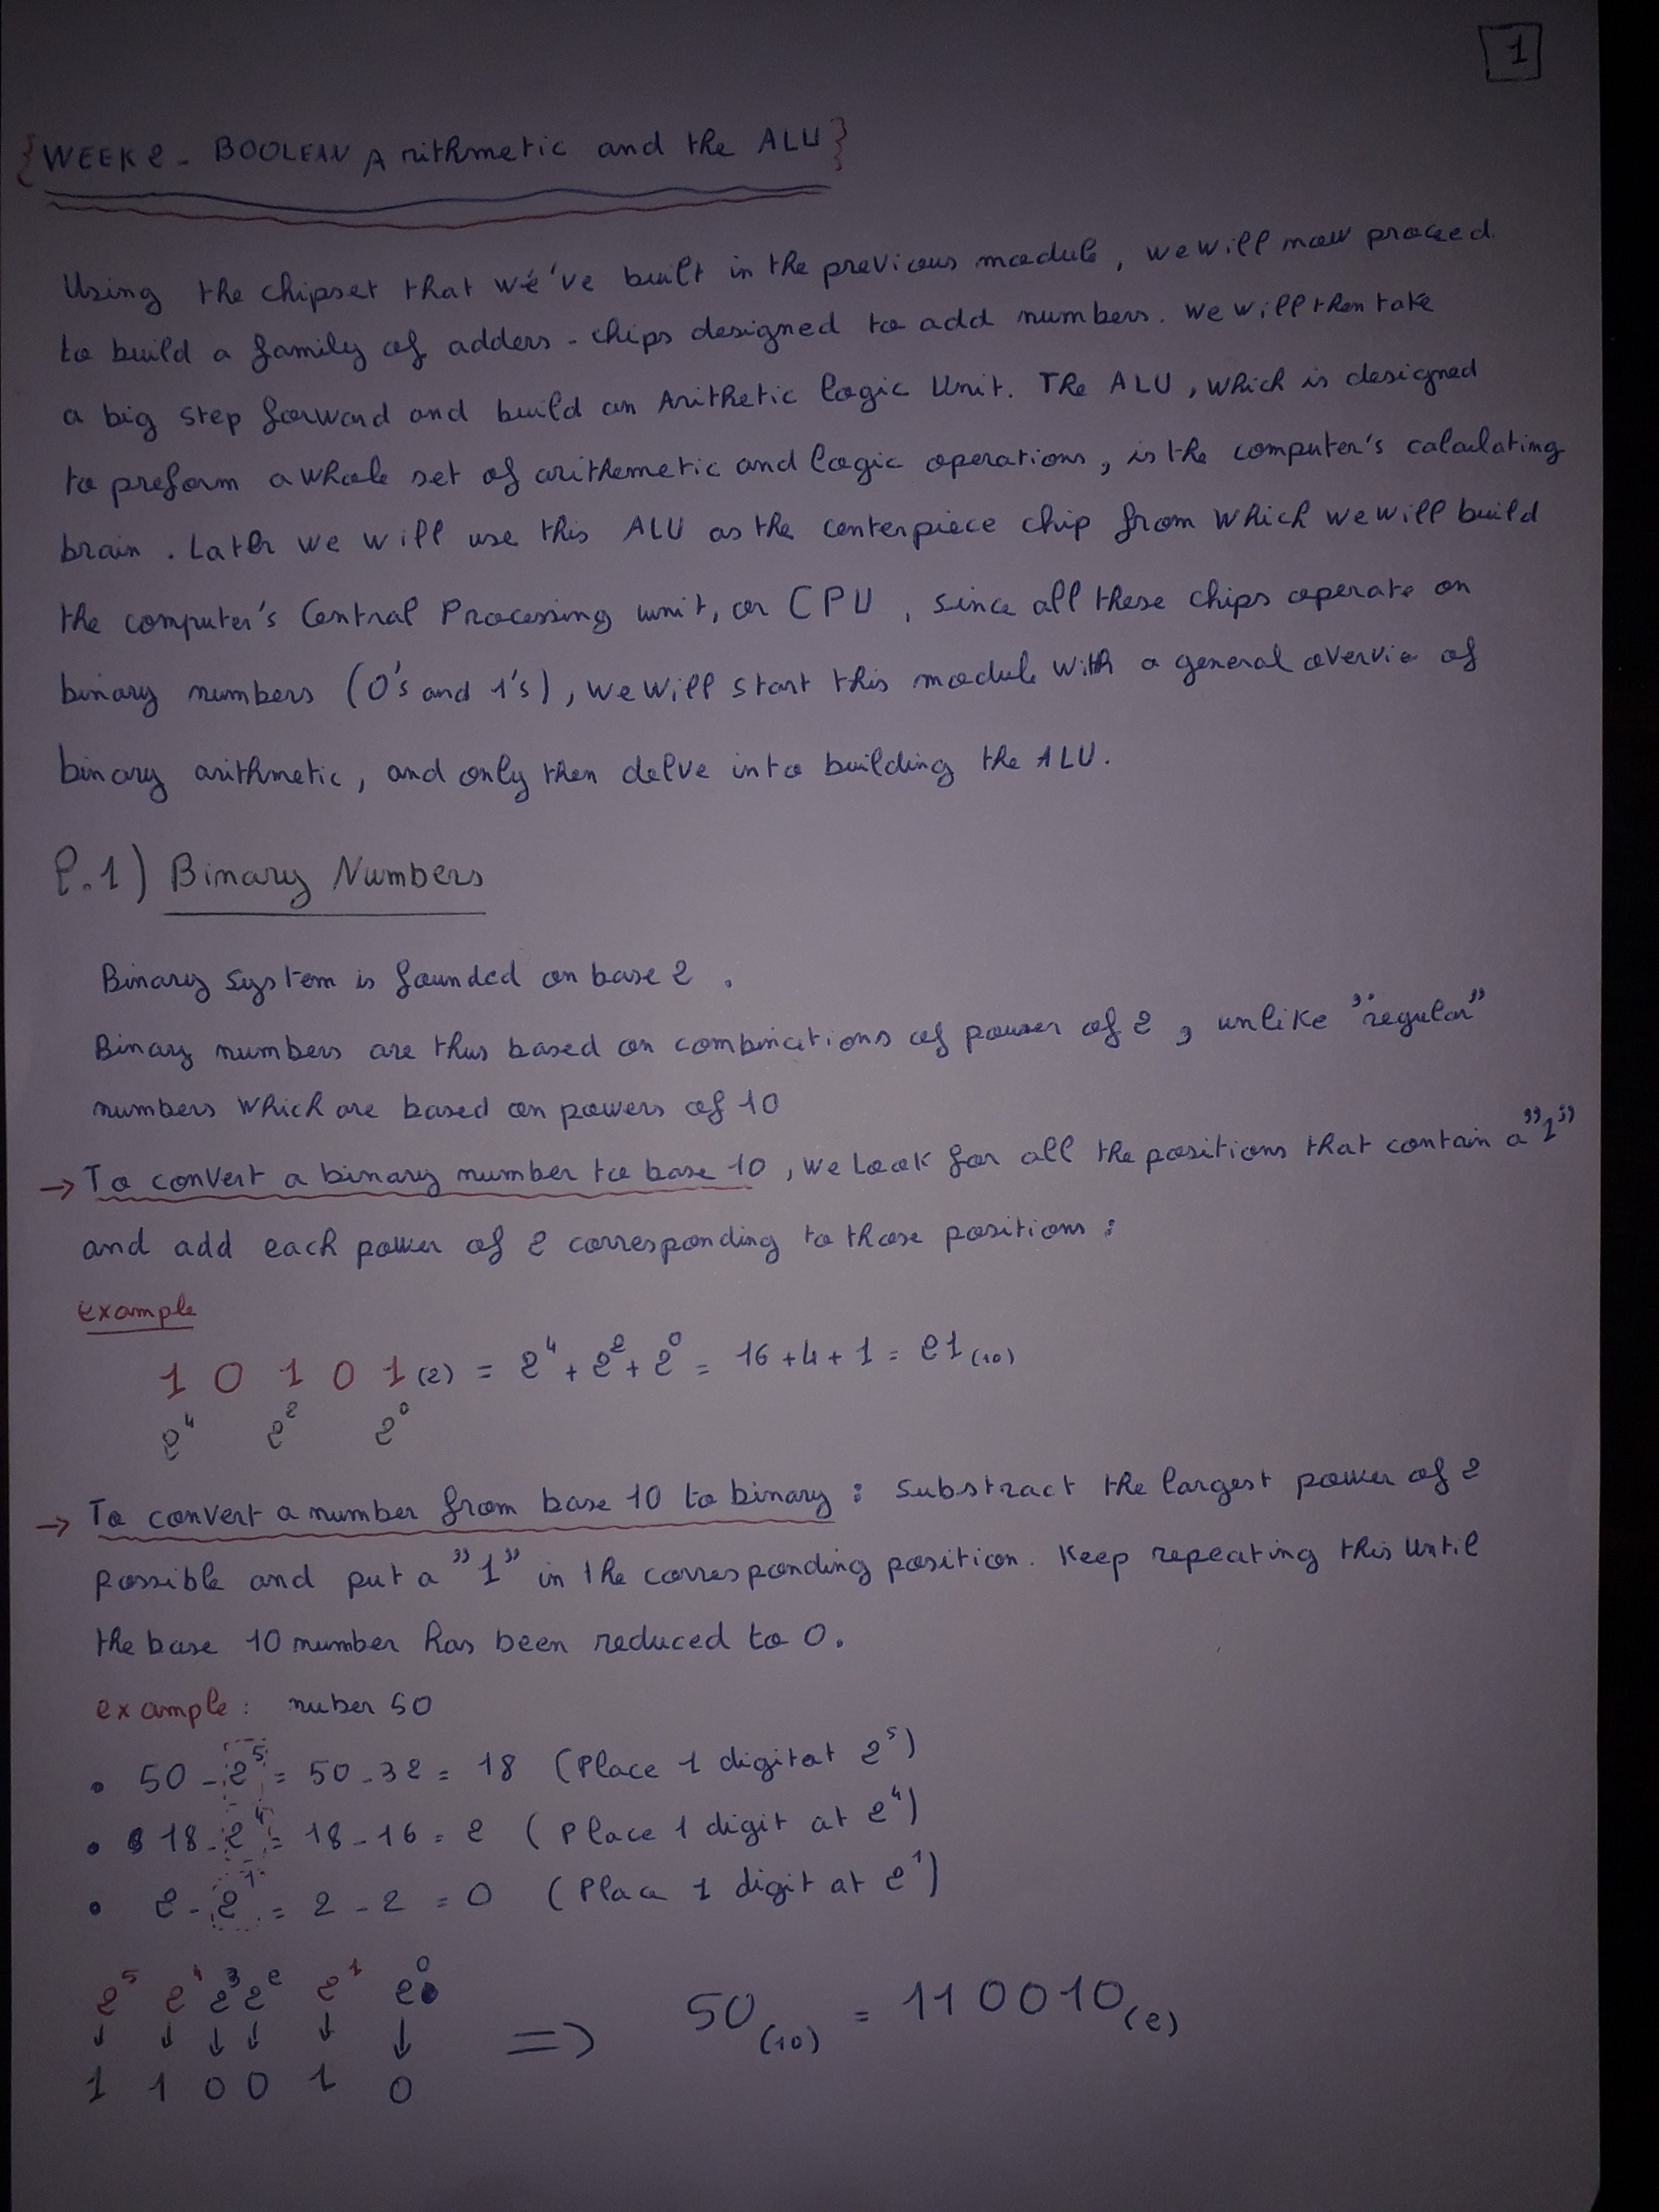 1
{WEEK 2 - BOOLEAN Arithmetic and the ALU}
Using the chipset that we've built in the previous module, we will now proceed
to build a family of adders - chips designed to add numbers. We will then take
a big step forward and build an Arithetic Logic Unit. The ALU, which is designed
to preform a whole set of arithemetic and logic operations, is the computer's calculating
brain. Later we will use this ALU as the centerpiece chip from which we will build
the computer's Central Processing unit, or CPU, since all these chips operate on
binary numbers (0's and 1's), we will start this module with a general overvie of
binary arithmetic, and only then delve into building the ALU.
2.1) Binary Numbers
Binary system is founded on base 2.
Binary numbers are thus based on combinations of power of 2, unlike "regular"
numbers which are based on powers of 10
→ To convert a binary number to base 10, we look for all the positions that contain a "1"
and add each power of 2 corresponding to those positions:
example
1 0 1 0 1 (2) = 2⁴ + 2² + 2⁰ = 16 + 4 + 1 = 21 (10)
2⁴ 2² 2⁰
→ To convert a number from base 10 to binary: Substract the largest power of 2
possible and put a "1" in the corresponding position. Keep repeating this until
the base 10 number has been reduced to 0.
example: nuber 50
• 50 - 2⁵ = 50 - 32 = 18 (Place 1 digit at 2⁵)
• 18 - 2⁴ = 18 - 16 = 2 (Place 1 digit at 2⁴)
• 2 - 2¹ = 2 - 2 = 0 (Place 1 digit at 2¹)
2⁵ 2⁴ 2³ 2² 2¹ 2⁰
↓ ↓ ↓ ↓ ↓ ↓ => 50 (10) = 110010 (2)
1 1 0 0 1 0